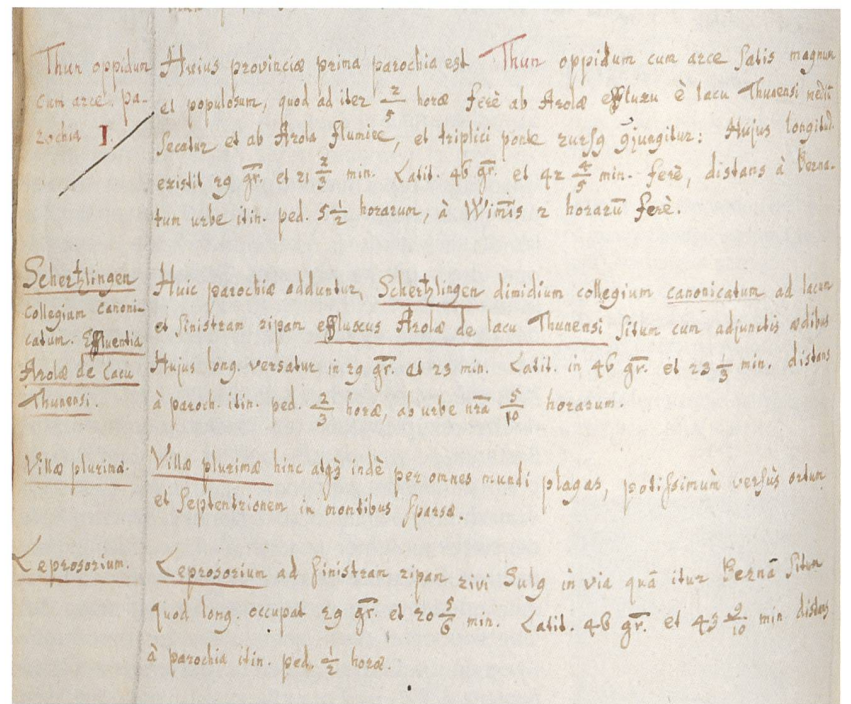 Thun oppidum
cum arce pa-
rochia I.
Huius provinciæ prima parochia est Thun oppidum cum arce satis magnum
et populosum, quod ad iter 2/5 horæ ferè ab Arolæ effluxu è lacu Thunensi mediũ
secatur et ab Arola flumine, et triplici ponte rursq ɡ̃jungitur: Hujus longitud.
existit 29 gr̃. et 21 2/3 min. Latit. 46 gr̃. et 42 4/5 min. ferè, distans à Berna-
tum urbe itin. ped. 5 1/2 horarum, à Wim̃is 2 horarũ ferè.
Scherhlingen
Collegium Canoni-
catum. Effluentia
Arolæ de Lacu
Thunensi.
Huic parochiæ adduntur, Scherhlingen dimidium collegium canonicatum ad lacum
et sinistram ripam effluxus Arolæ de lacu Thunensi situm cum adjunctis ædibus
Hujus long. versatur in 29 gr̃. et 23 min. Latit. in 46 gr̃. et 23 1/3 min. distans
à paroch. itin. ped. 2/3 horæ, ab urbe nr̃a 5/10 horarum.
Villæ plurimæ.
Villæ plurimæ hinc atq̃ indè per omnes mundi plagas, potissimùm versùs ortum
et Septentrionem in montibus sparsæ.
Leprosorium.
Leprosorium ad sinistram ripam rivi Sulg in via quâ itur Bernã situm
quod long. occupat 29 gr̃. et 20 5/6 min. Latit. 46 gr̃. et 43 9/10 min distans
à parochia itin. ped. 1/2 horæ.